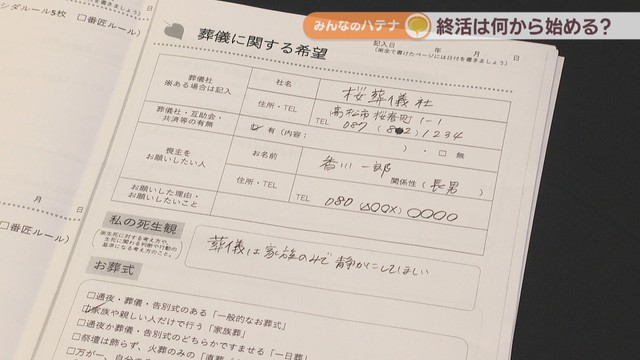 みんなのハテナ
終活は何から始める？
シダルール5枚
□番匠ルール)
月 日
□番匠ルール)
葬儀に関する希望
記入日 年 月 日
葬儀社
※ある場合は記入
社名
桜葬儀社
住所・TEL
高松市桜春町1-1
TEL 087 (802) 1234
葬儀社・互助会・
共済等の有無
☑ 有 (内容: )・□ 無
喪主を
お願いしたい人
お名前
香川一郎
関係性 (長男)
住所・TEL
TEL 080 (△○○×) ○○○○
お願いした理由・
お願いしたいこと
私の死生観
葬儀は家族のみで静かにしてほしい
お葬式
□通夜・葬儀・告別式のある「一般的なお葬式」
☑家族や親しい人だけで行う「家族葬」
□通夜か葬儀・告別式のどちらかですませる「一日葬」
□祭壇は飾らず、火葬のみの「直葬